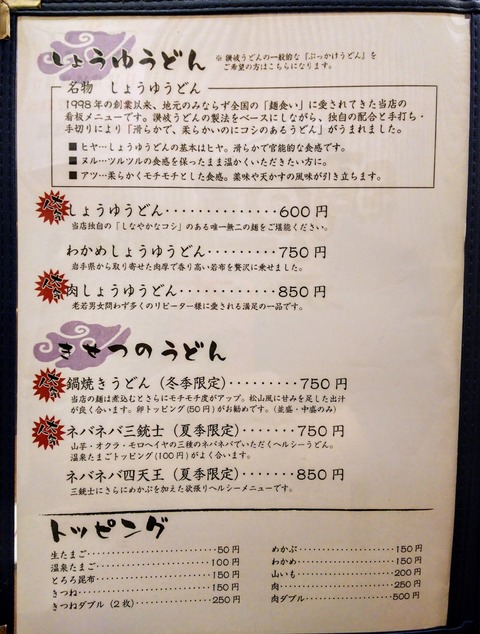 しょうゆうどん
※ 讃岐うどんの一般的な『ぶっかけうどん』を
ご希望の方はこちらになります。
名物 しょうゆうどん
1998年の創業以来、地元のみならず全国の「麺食い」に愛されてきた当店の
看板メニューです。讃岐うどんの製法をベースにしながら、独自の配合と手打ち・
手切りにより「滑らかで、柔らかいのにコシのあるうどん」がうまれました。
■ ヒヤ…しょうゆうどんの基本はヒヤ。滑らかで官能的な食感です。
■ ヌル…ツルツルの食感を保ったまま温かくいただきたい方に。
■ アツ…柔らかくモチモチとした食感。薬味や天かすの風味が引き立ちます。
大人気
しょうゆうどん・・・・・・・・・・・・・・600円
当店独自の「しなやかなコシ」のある唯一無二の麺をご堪能ください。
わかめしょうゆうどん・・・・・・・・・750円
岩手県から取り寄せた肉厚で香り高い若布を贅沢に乗せました。
大人気
肉しょうゆうどん・・・・・・・・・・・・850円
老若男女問わず多くのリピーター様に愛される満足の一品です。
きせつのうどん
大人気
鍋焼きうどん（冬季限定）・・・・・・・・・750円
当店の麺は煮込むとさらにモチモチ度がアップ。松山風に甘みを足した出汁
が良く合います。卵トッピング(50円)がお勧めです。(並盛・中盛のみ)
大人気
ネバネバ三銃士（夏季限定）・・・・・・・750円
山芋・オクラ・モロヘイヤの三種のネバネバでいただくヘルシーうどん。
温泉たまごトッピング(100円)がよく合います。
ネバネバ四天王（夏季限定）・・・・・・・850円
三銃士にさらにめかぶを加えた欲張りヘルシーメニューです。
トッピング
生たまご・・・・・・・・・・・・50円
温泉たまご・・・・・・・・・・100円
とろろ昆布・・・・・・・・・・150円
きつね・・・・・・・・・・・・150円
きつねダブル（2枚）・・・・・・250円
めかぶ・・・・・・・・・・・・150円
わかめ・・・・・・・・・・・・150円
山いも・・・・・・・・・・・・200円
肉・・・・・・・・・・・・・・250円
肉ダブル・・・・・・・・・・・500円